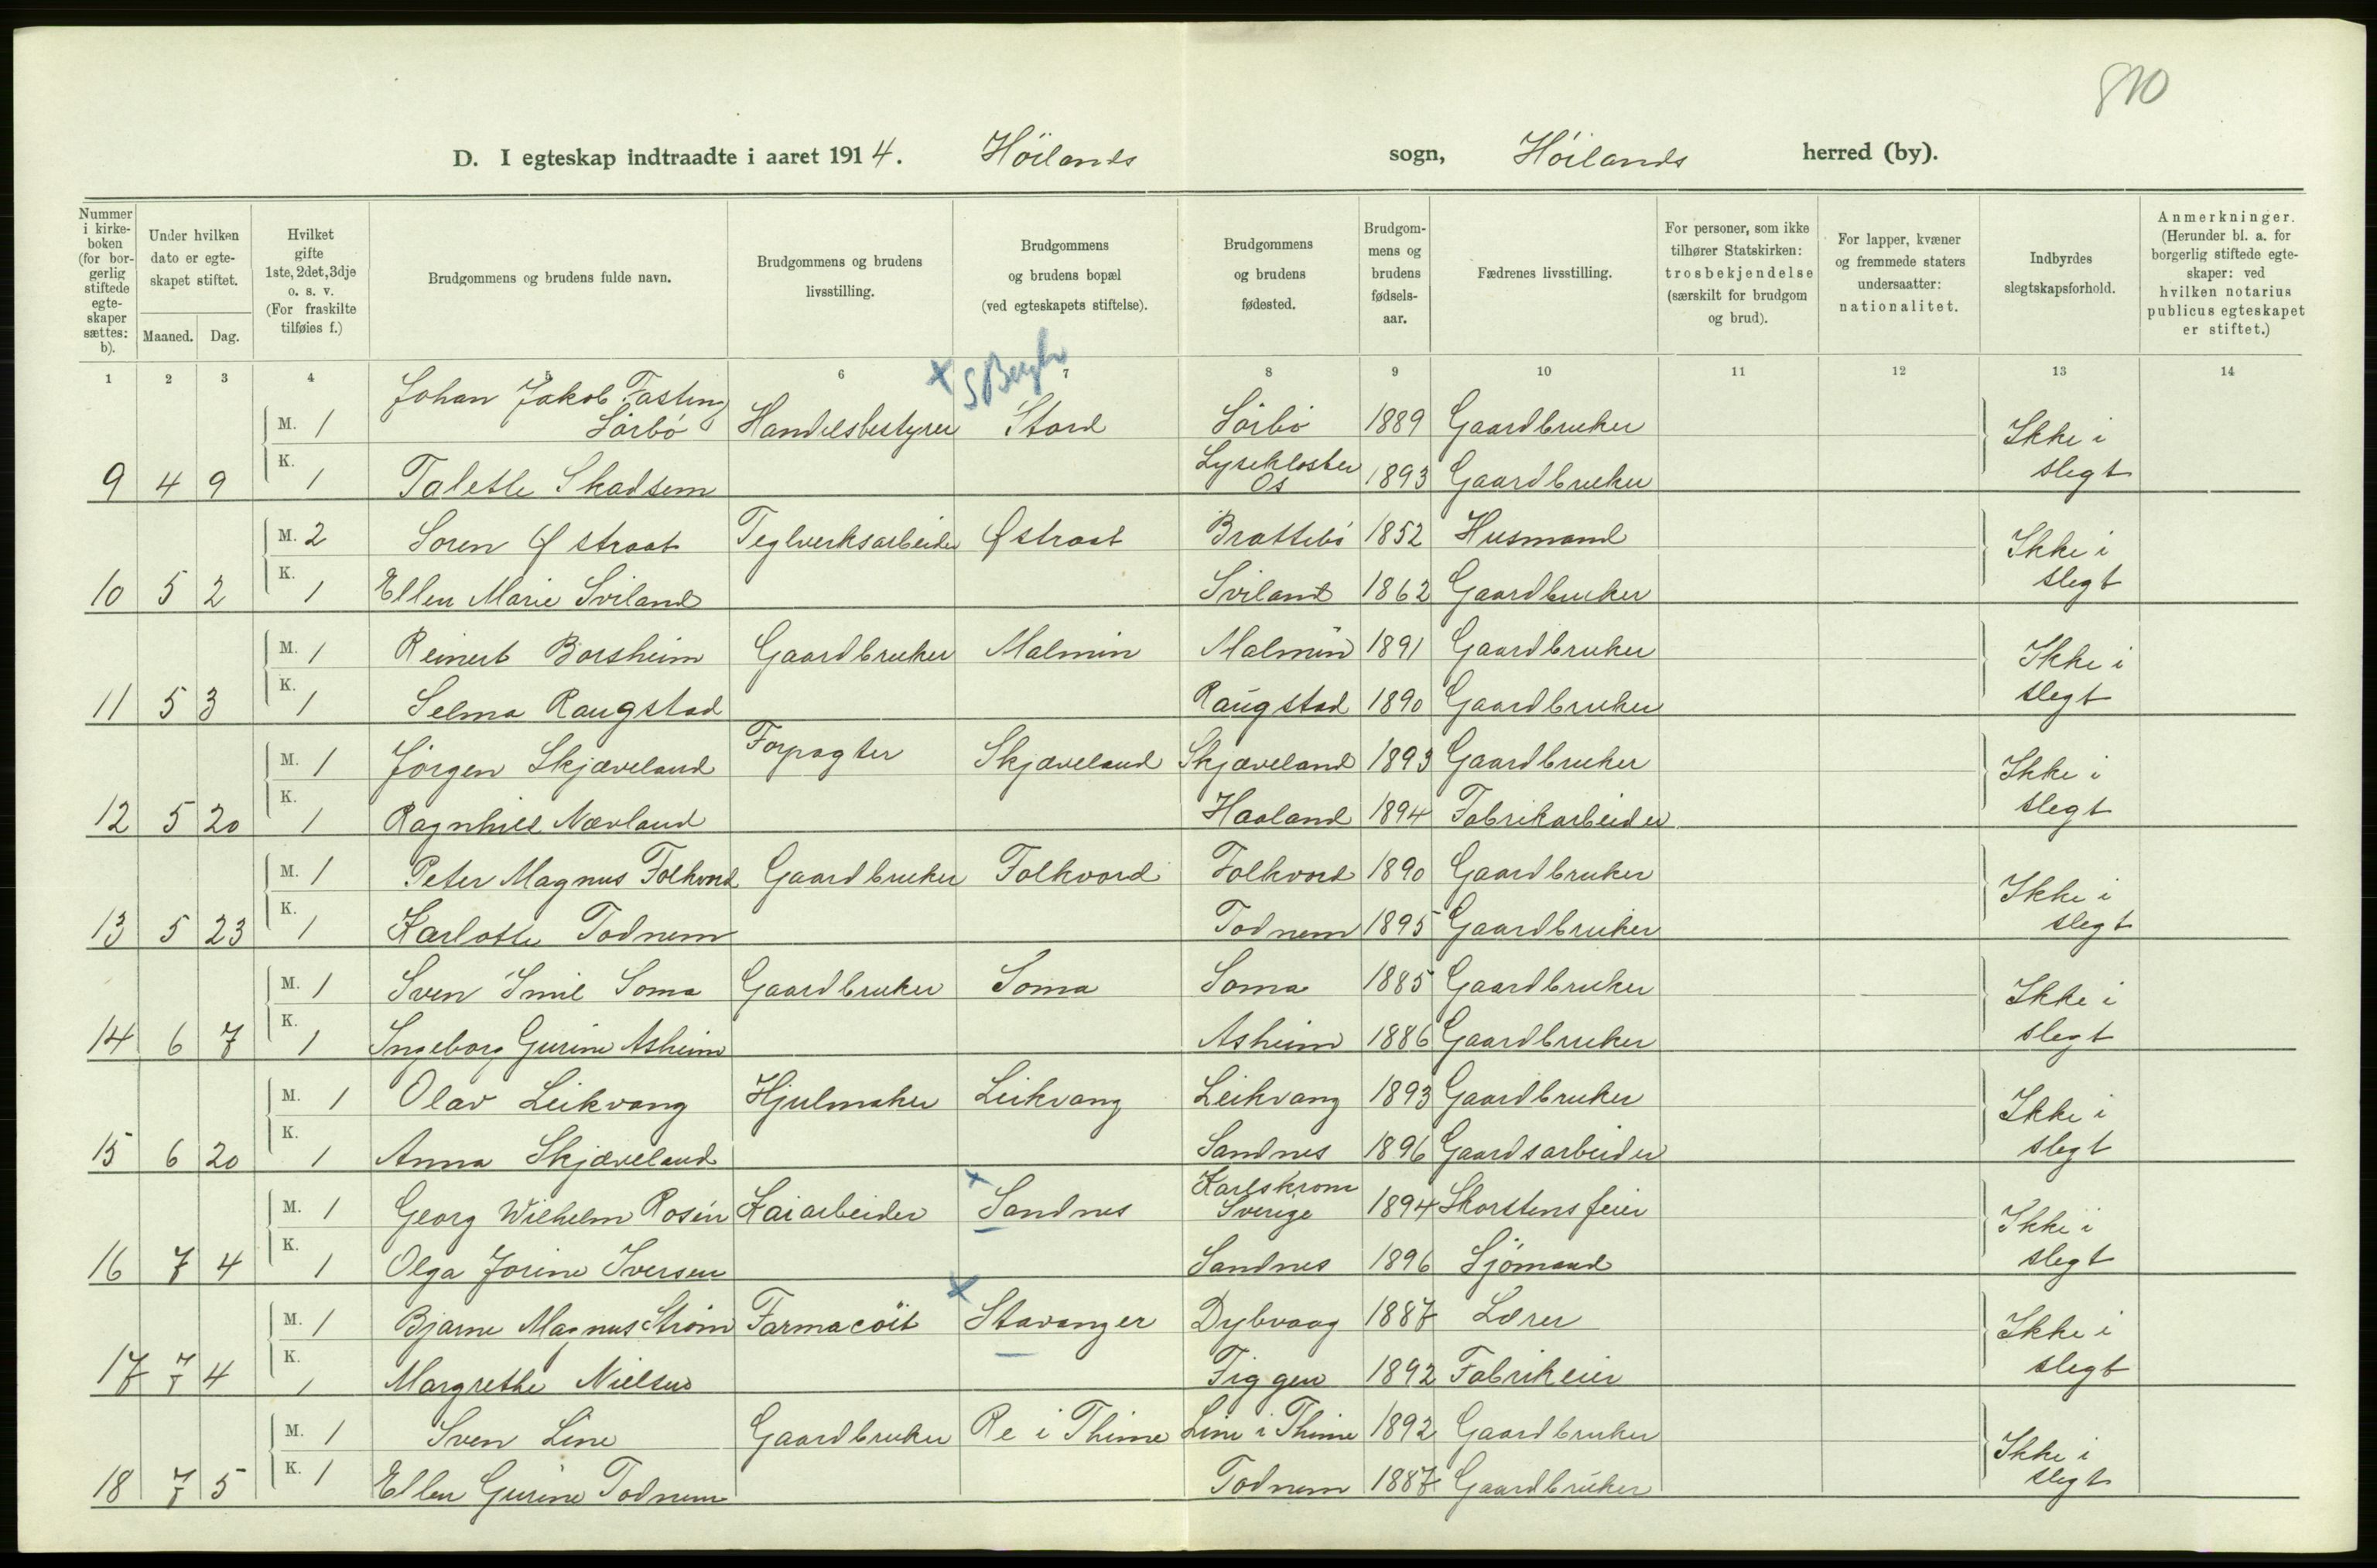 810
D. I egteskap indtraadte i aaret 1914. Höilands sogn, Höilands herred (by).
Nummer i kirkeboken (for borgerlig stiftede egteskaper sættes: b).
Under hvilken dato er egteskapet stiftet.
Maaned. Dag.
Hvilket gifte 1ste, 2det, 3dje o. s. v. (For fraskilte tilføies f.)
Brudgommens og brudens fulde navn.
Brudgommens og brudens livsstilling.
Brudgommens og brudens bopæl (ved egteskapets stiftelse).
Brudgommens og brudens fødested.
Brudgommens og brudens fødselsaar.
Fædrenes livsstilling.
For personer, som ikke tilhører Statskirken: trosbekjendelse (særskilt for brudgom og brud).
For lapper, kvæner og fremmede staters undersaatter: nationalitet.
Indbyrdes slegtskapsforhold.
Anmerkninger. (Herunder bl. a. for borgerlig stiftede egteskaper: ved hvilken notarius publicus egteskapet er stiftet.)
1 2 3 4 5 6 7 8 9 10 11 12 13 14
Johan Jakob Fasting
M. 1 Sörbö Handelsbestyrer Stord Sörbö 1889 Gaardbruker Ikke i
Lysekloster
9 4 9 K. 1 Talette Skadsem Os 1893 Gaardbruker slegt
M. 2 Soren Østraat Teglverksarbeider Østraat Brattebö 1852 Husmand Ikke i
10 5 2 K. 1 Ellen Marie Sviland Sviland 1862 Gaardbruker slegt
M. 1 Reinert Borsheim Gaardbruker Malmin Malmin 1891 Gaardbruker Ikke i
11 5 3 K. 1 Selma Raugstad Raugstad 1890 Gaardbruker slegt
M. 1 Jörgen Skjæveland Forpagter Skjæveland Skjæveland 1893 Gaardbruker Ikke i
12 5 20 K. 1 Ragnhild Nævland Haaland 1894 Fabrikarbeider slegt
M. 1 Peter Magnus Folkvord Gaardbruker Folkvord Folkvord 1890 Gaardbruker Ikke i
13 5 23 K. 1 Karlotte Todnem Todnem 1895 Gaardbruker slegt
M. 1 Sven Emil Soma Gaardbruker Soma Soma 1885 Gaardbruker Ikke i
14 6 7 K. 1 Ingeborg Gurine Asheim Asheim 1886 Gaardbruker slegt
M. 1 Olav Leikvang Hjulmaker Leikvang Leikvang 1893 Gaardbruker Ikke i
15 6 20 K. 1 Anna Skjæveland Sandnes 1896 Gaardsarbeider slegt
Karlskrone
M. 1 Georg Wilhelm Rosén Kaiarbeider Sandnes Sverige 1894 Skorstensfeier Ikke i
16 7 4 K. 1 Olga Jorine Iversen Sandnes 1896 Sjömand slegt
M. 1 Bjarne Magnus Ström Farmacöit Stavanger Dybvaag 1887 Lærer Ikke i
17 7 4 K. 1 Margrethe Nielsen Figgen 1892 Fabrikeier slegt
M. 1 Sven Line Gaardbruker Re i Thime Line i Thime 1892 Gaardbruker Ikke i
18 7 5 K. 1 Ellen Gurine Todnem Todnem 1887 Gaardbruker slegt